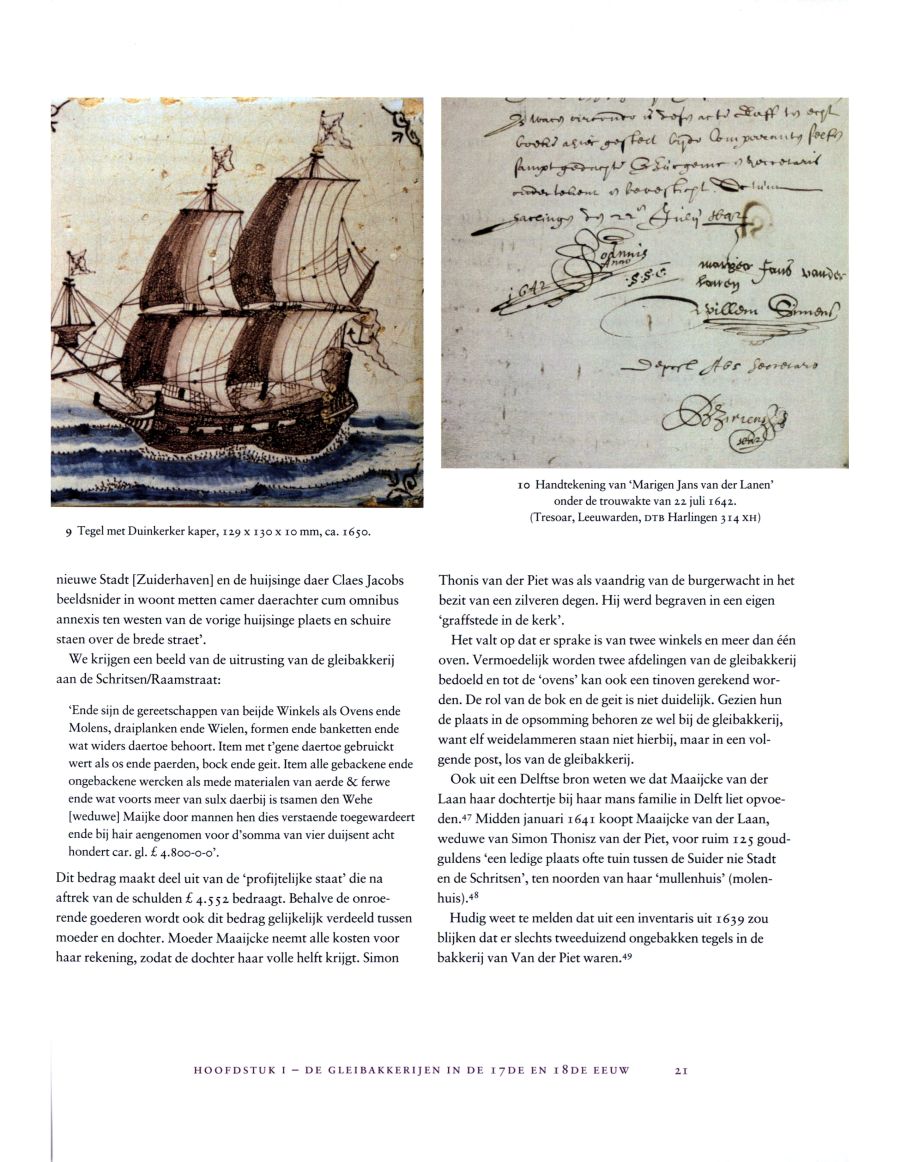 Joannis
Anno
1642
S.S.C.
Jans vander
Willem Simens
Secretaro
1642
9 Tegel met Duinkerker kaper, 129 x 130 x 10 mm, ca. 1650.
10 Handtekening van ‘Marigen Jans van der Lanen’
onder de trouwakte van 22 juli 1642.
(Tresoar, Leeuwarden, DTB Harlingen 314 XH)
nieuwe Stadt [Zuiderhaven] en de huijsinge daer Claes Jacobs
beeldsnider in woont metten camer daerachter cum omnibus
annexis ten westen van de vorige huijsinge plaets en schuire
staen over de brede straet’.
We krijgen een beeld van de uitrusting van de gleibakkerij
aan de Schritsen/Raamstraat:
‘Ende sijn de gereetschappen van beijde Winkels als Ovens ende
Molens, draiplanken ende Wielen, formen ende banketten ende
wat widers daertoe behoort. Item met t’gene daertoe gebruickt
wert als os ende paerden, bock ende geit. Item alle gebackene ende
ongebackene wercken als mede materialen van aerde & ferwe
ende wat voorts meer van sulx daerbij is tsamen den Wehe
[weduwe] Maijke door mannen hen dies verstaende toegewardeert
ende bij hair aengenomen voor d’somma van vier duijsent acht
hondert car. gl. £ 4.800-0-0’.
Dit bedrag maakt deel uit van de ‘profijtelijke staat’ die na
aftrek van de schulden £ 4.552 bedraagt. Behalve de onroe-
rende goederen wordt ook dit bedrag gelijkelijk verdeeld tussen
moeder en dochter. Moeder Maaijcke neemt alle kosten voor
haar rekening, zodat de dochter haar volle helft krijgt. Simon
Thonis van der Piet was als vaandrig van de burgerwacht in het
bezit van een zilveren degen. Hij werd begraven in een eigen
‘graffstede in de kerk’.
Het valt op dat er sprake is van twee winkels en meer dan één
oven. Vermoedelijk worden twee afdelingen van de gleibakkerij
bedoeld en tot de ‘ovens’ kan ook een tinoven gerekend wor-
den. De rol van de bok en de geit is niet duidelijk. Gezien hun
de plaats in de opsomming behoren ze wel bij de gleibakkerij,
want elf weidelammeren staan niet hierbij, maar in een vol-
gende post, los van de gleibakkerij.
Ook uit een Delftse bron weten we dat Maaijcke van der
Laan haar dochtertje bij haar mans familie in Delft liet opvoe-
den.47 Midden januari 1641 koopt Maaijcke van der Laan,
weduwe van Simon Thonisz van der Piet, voor ruim 125 goud-
guldens ‘een ledige plaats ofte tuin tussen de Suider nie Stadt
en de Schritsen’, ten noorden van haar ‘mullenhuis’ (molen-
huis).48
Hudig weet te melden dat uit een inventaris uit 1639 zou
blijken dat er slechts tweeduizend ongebakken tegels in de
bakkerij van Van der Piet waren.49
HOOFDSTUK I – DE GLEIBAKKERIJEN IN DE 17DE EN 18DE EEUW 21